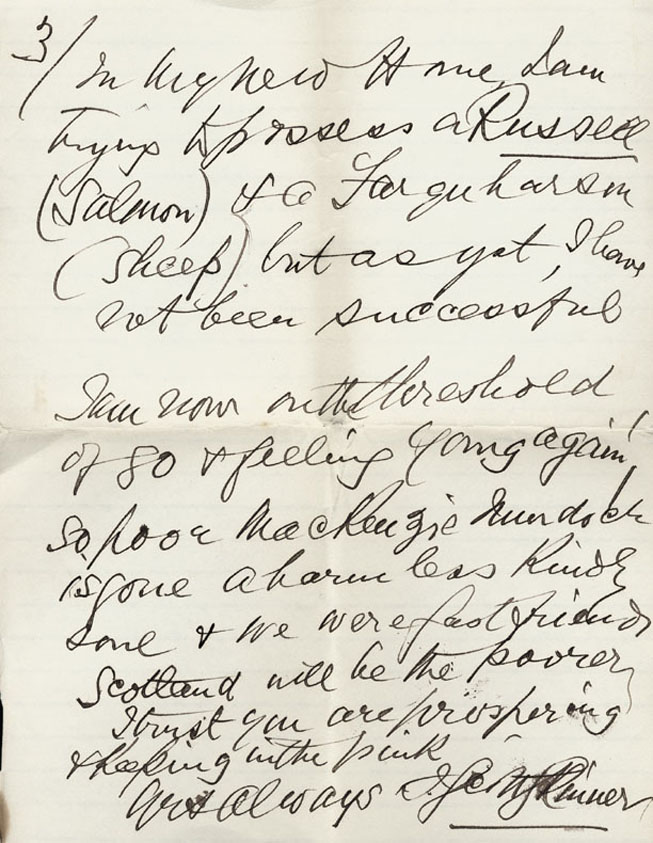 3/ In my new Home, I am
trying to possess a Russell
(Salmon) & a Farquharson
(Sheep) but as yet, I have
not been successful
I am now on the threshold
of 80 & feeling young again!
So, poor MacKenzie Murdoch
is gone a harmless Kindly
soul & we were fast friends
Scotland will be the poorer,
I trust you are prospering
& keeping in the pink
Yrs always J. Scott Skinner